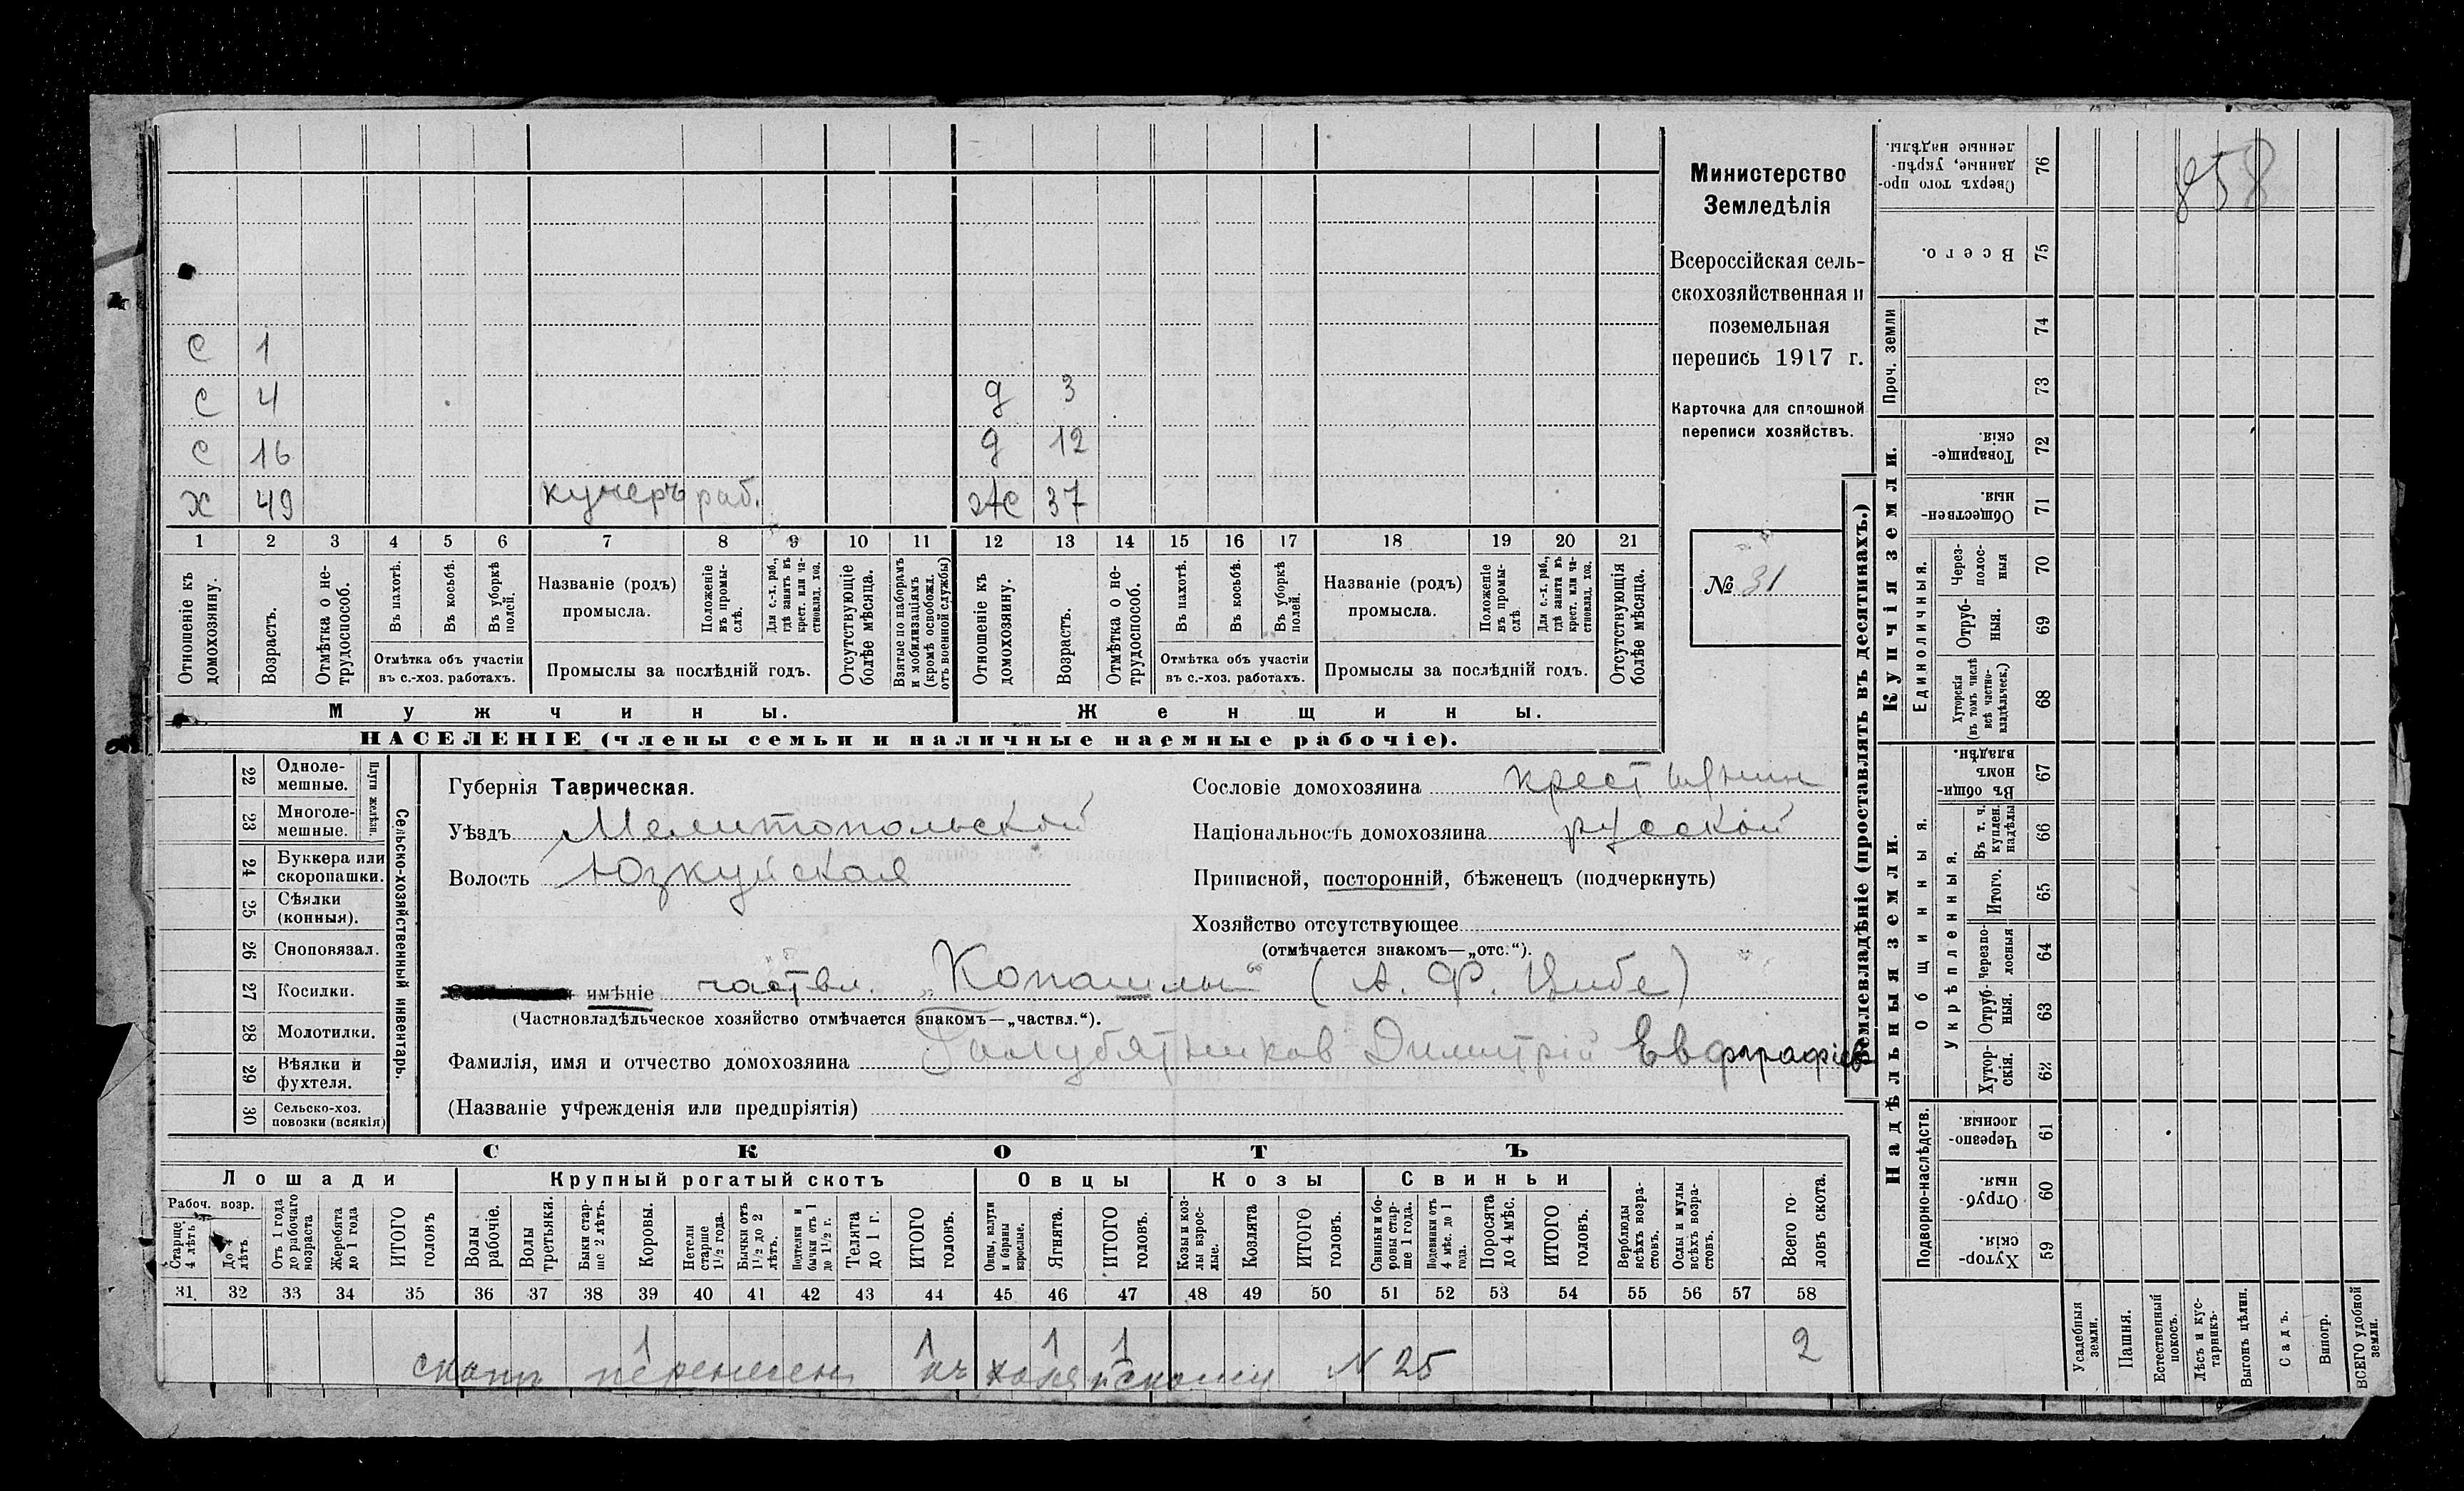 858
Министерство
Земледѣлія
Всероссійская сель-
скохозяйственная и
поземельная
перепись 1917 г.
Карточка для сплошной
переписи хозяйствъ.
№ 31
С 1
С 4 д 3
С 16 д 12
Х 49 кучеръ раб. Ж 37
1 2 3 4 5 6 7 8 9 10 11 12 13 14 15 16 17 18 19 20 21
Отношеніе къ домохозяину.
Возрастъ.
Отмѣтка о не-трудоспособ.
Въ пахотѣ.
Въ косьбѣ.
Въ уборкѣ полей.
Отмѣтка объ участіи
въ с.-хоз. работахъ.
Названіе (родъ)
промысла.
Положеніе въ промы-слѣ.
Для с.-х. раб., гдѣ занятъ въ крест. или ча-стновлад. хоз.
Промыслы за послѣдній годъ.
Отсутствующіе болѣе мѣсяца.
Взятые по наборамъ и мобилизаціямъ (кромѣ освобожд. отъ военной службы)
Отношеніе къ домохозяину.
Возрастъ.
Отмѣтка о не-трудоспособ.
Въ пахотѣ.
Въ косьбѣ.
Въ уборкѣ полей.
Отмѣтка объ участіи
въ с.-хоз. работахъ.
Названіе (родъ)
промысла.
Положеніе въ промы-слѣ
Для с.-х. раб., гдѣ занята въ крест. или ча-стновлад. хоз.
Промыслы за послѣдній годъ.
Отсутствующія болѣе мѣсяца.
Мужчины.
Женщины.
НАСЕЛЕНІЕ (члены семьи и наличные наемные рабочіе).
Сельско-хозяйственный инвентарь.
Плуги желѣзн.
22 Одноле-мешные.
23 Многоле-мешные.
24 Буккера или скоропашки.
25 Сѣялки (конныя).
26 Сноповязал.
27 Косилки.
28 Молотилки.
29 Вѣялки и фухтеля.
30 Сельско-хоз. повозки (всякія)
Губернія Таврическая.
Уѣздъ Мелитопольской
Волость Юзкуйская
Сословіе домохозяина крестьянин
Національность домохозяина русской
Приписной, посторонній, бѣженецъ (подчеркнуть)
Хозяйство отсутствующее
(отмѣчается знакомъ—„отс.“).
имѣніе частвл. „Копашлы“ (А. Ф. Цибе)
(Частновладѣльческое хозяйство отмѣчается знакомъ—„частвл.“).
Фамилія, имя и отчество домохозяина Голубятников Димитрій Евграфіев
(Названіе учрежденія или предпріятія)
СКОТЪ
Лошади
Крупный рогатый скотъ
Овцы
Козы
Свиньи
Рабоч. возр.
Старше 4 лѣтъ
До 4 лѣтъ
Отъ 1 года до рабочаго возраста
Жеребята до 1 года
ИТОГО головъ
Волы рабочіе.
Волы третьяки.
Быки стар-ше 2 лѣтъ.
Коровы.
Нетели старше 1½ года.
Бычки отъ 1½ до 2 лѣтъ.
Подтелки и бычки отъ 1 до 1½ г.
Телята до 1 г.
ИТОГО головъ.
Овцы, валухи и бараны взрослые.
Ягнята.
ИТОГО головъ.
Козы и коз-лы взрос-лые.
Козлята
ИТОГО головъ.
Свиньи и бо-ровы стар-ше 1 года.
Подсвинки отъ 4 мѣс. до 1 года.
Поросята до 4 мѣс.
ИТОГО головъ.
Верблюды всѣхъ возра-стовъ.
Ослы и мулы всѣхъ возра-стовъ.
Всего го-ловъ скота.
31 32 33 34 35 36 37 38 39 40 41 42 43 44 45 46 47 48 49 50 51 52 53 54 55 56 57 58
1 1 1 1 2
скотъ перенесен къ хозяйскому N 25
Землевладѣніе (проставлять въ десятинахъ.)
Надѣльныя земли.
Купчія земли.
Проч. земли
Подворно-наслѣдств.
Общинныя.
Укрѣпленныя.
Единоличныя.
Сверхъ того про-данные, укрѣп-ленные надѣлы. 76
Всего. 75
74
73
Товарище-скія. 72
Обществен-ныя. 71
Через-полос-ныя 70
Отруб-ныя. 69
Хуторскія (въ томъ числѣ всѣ частно-владѣльческ.) 68
Въ общин-номъ владѣн. 67
Въ т. ч. куплен. надѣлы 66
Итого. 65
Черезпо-лосныя 64
Отруб-ныя. 63
Хутор-скія. 62
Черезпо-лосныя 61
Отруб-ныя. 60
Хутор-скія. 59
Усадебныя земли.
Пашня.
Естественный покосъ.
Лѣсъ и кус-тарникъ.
Выгонъ цѣлин.
Садъ.
Виногр.
ВСЕГО удобной земли.